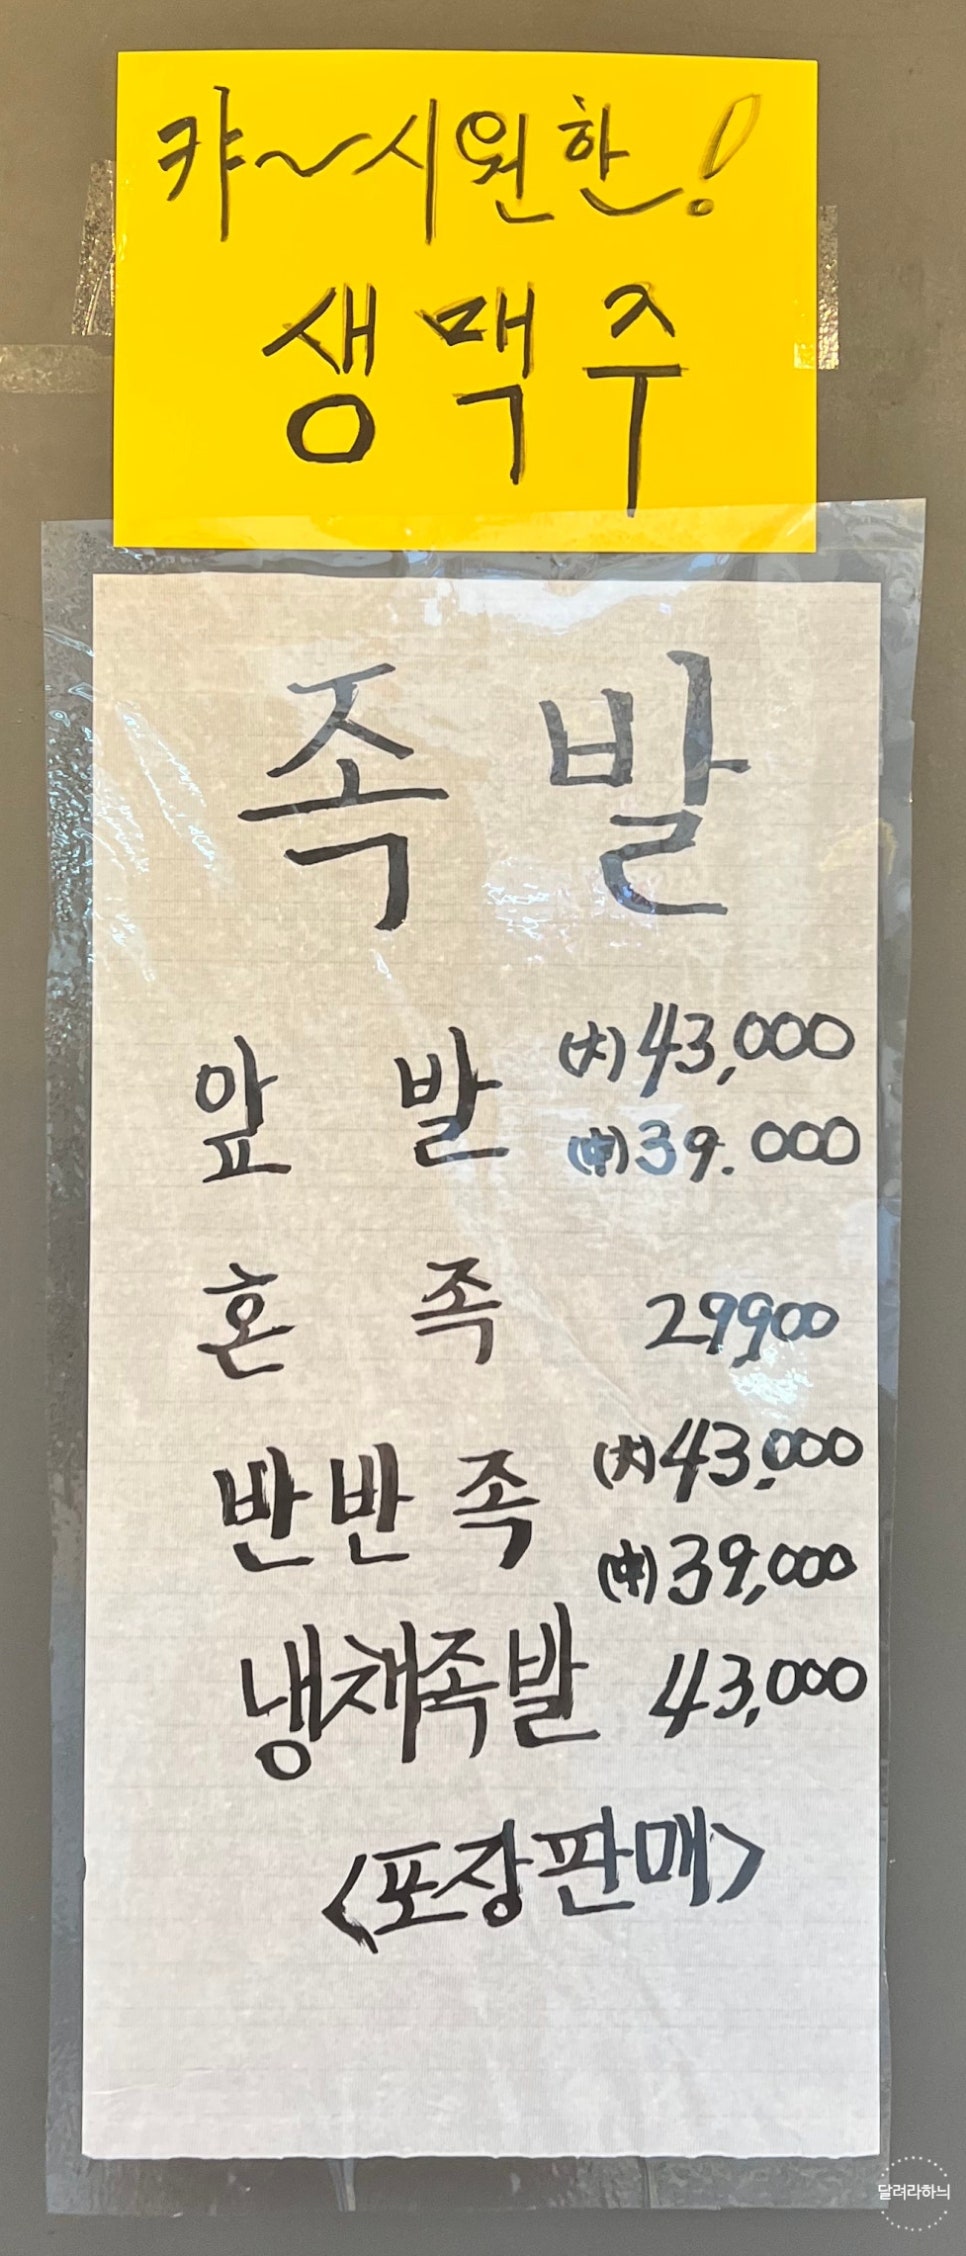 캬~시원한!
생맥주
족발
앞발 (大)43,000
(中)39.000
혼족 29900
반반족 (大)43,000
(中)39,000
냉채족발 43,000
<포장판매>
달려라하늬